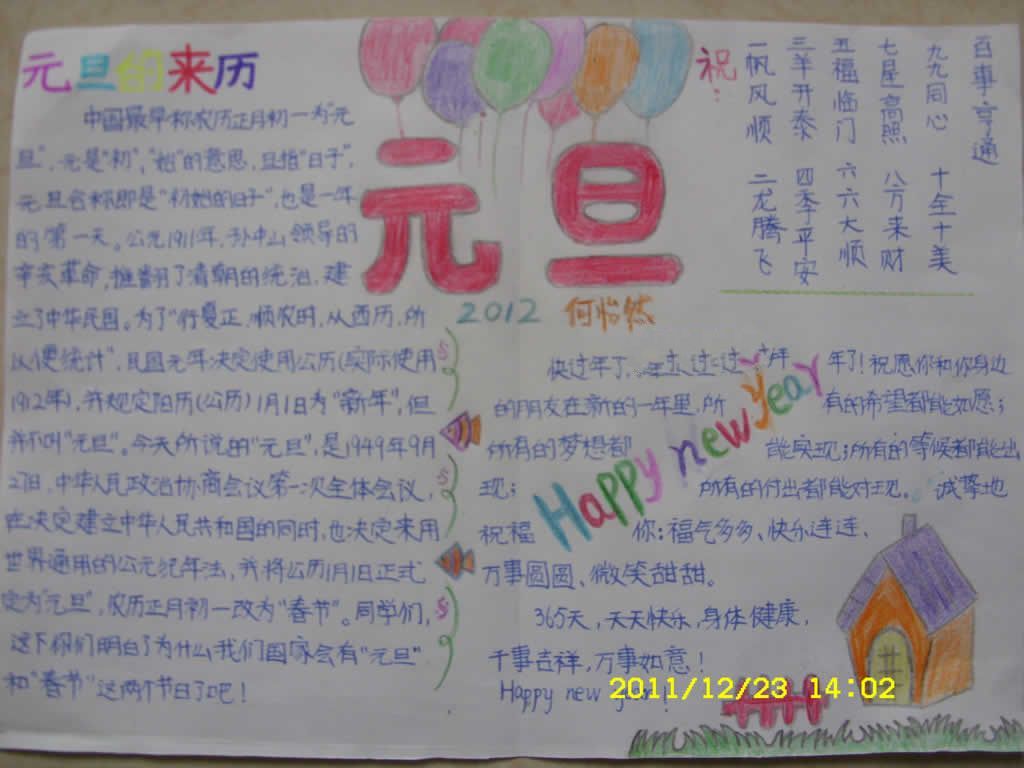 元旦的来历
中国最早称农历正月初一为"元
旦",元是"初","始"的意思,旦指"日子",
元旦合称即是"初始的日子",也是一年
的第一天。公元1911年,孙中山领导的
辛亥革命,推翻了清朝的统治,建
立了中华民国。为了"行夏正,顺农时,从西历,所
以便统计",民国元年决定使用公历(实际使用
1912年),并规定阳历(公历)1月1日为"新年",但
并不叫"元旦"。今天所说的"元旦",是1949年9月
27日,中华人民政治协商会议第一次全体会议,
在决定建立中华人民共和国的同时,也决定采用
世界通用的公元纪年法,并将公历1月1日正式
定为"元旦",农历正月初一改为"春节"。同学们,
这下你们明白了为什么我们国家会有"元旦"
和"春节"这两个节日了吧!
元旦
2012 何怡然
祝:
一帆风顺 二龙腾飞
三羊开泰 四季平安
五福临门 六六大顺
七星高照 八方来财
九九同心 十全十美
百事亨通
快过年了, 年了!祝愿你和你身边
的朋友在新的一年里,所有的希望都能如愿;
所有的梦想都能实现;所有的等候都能出
现;所有的付出都能对现。诚挚地
祝福你:福气多多、快乐连连、
万事圆圆、微笑甜甜。
365天,天天快乐,身体健康,
千事吉祥,万事如意!
Happy new year!
Happy new year
2011/12/23 14:02